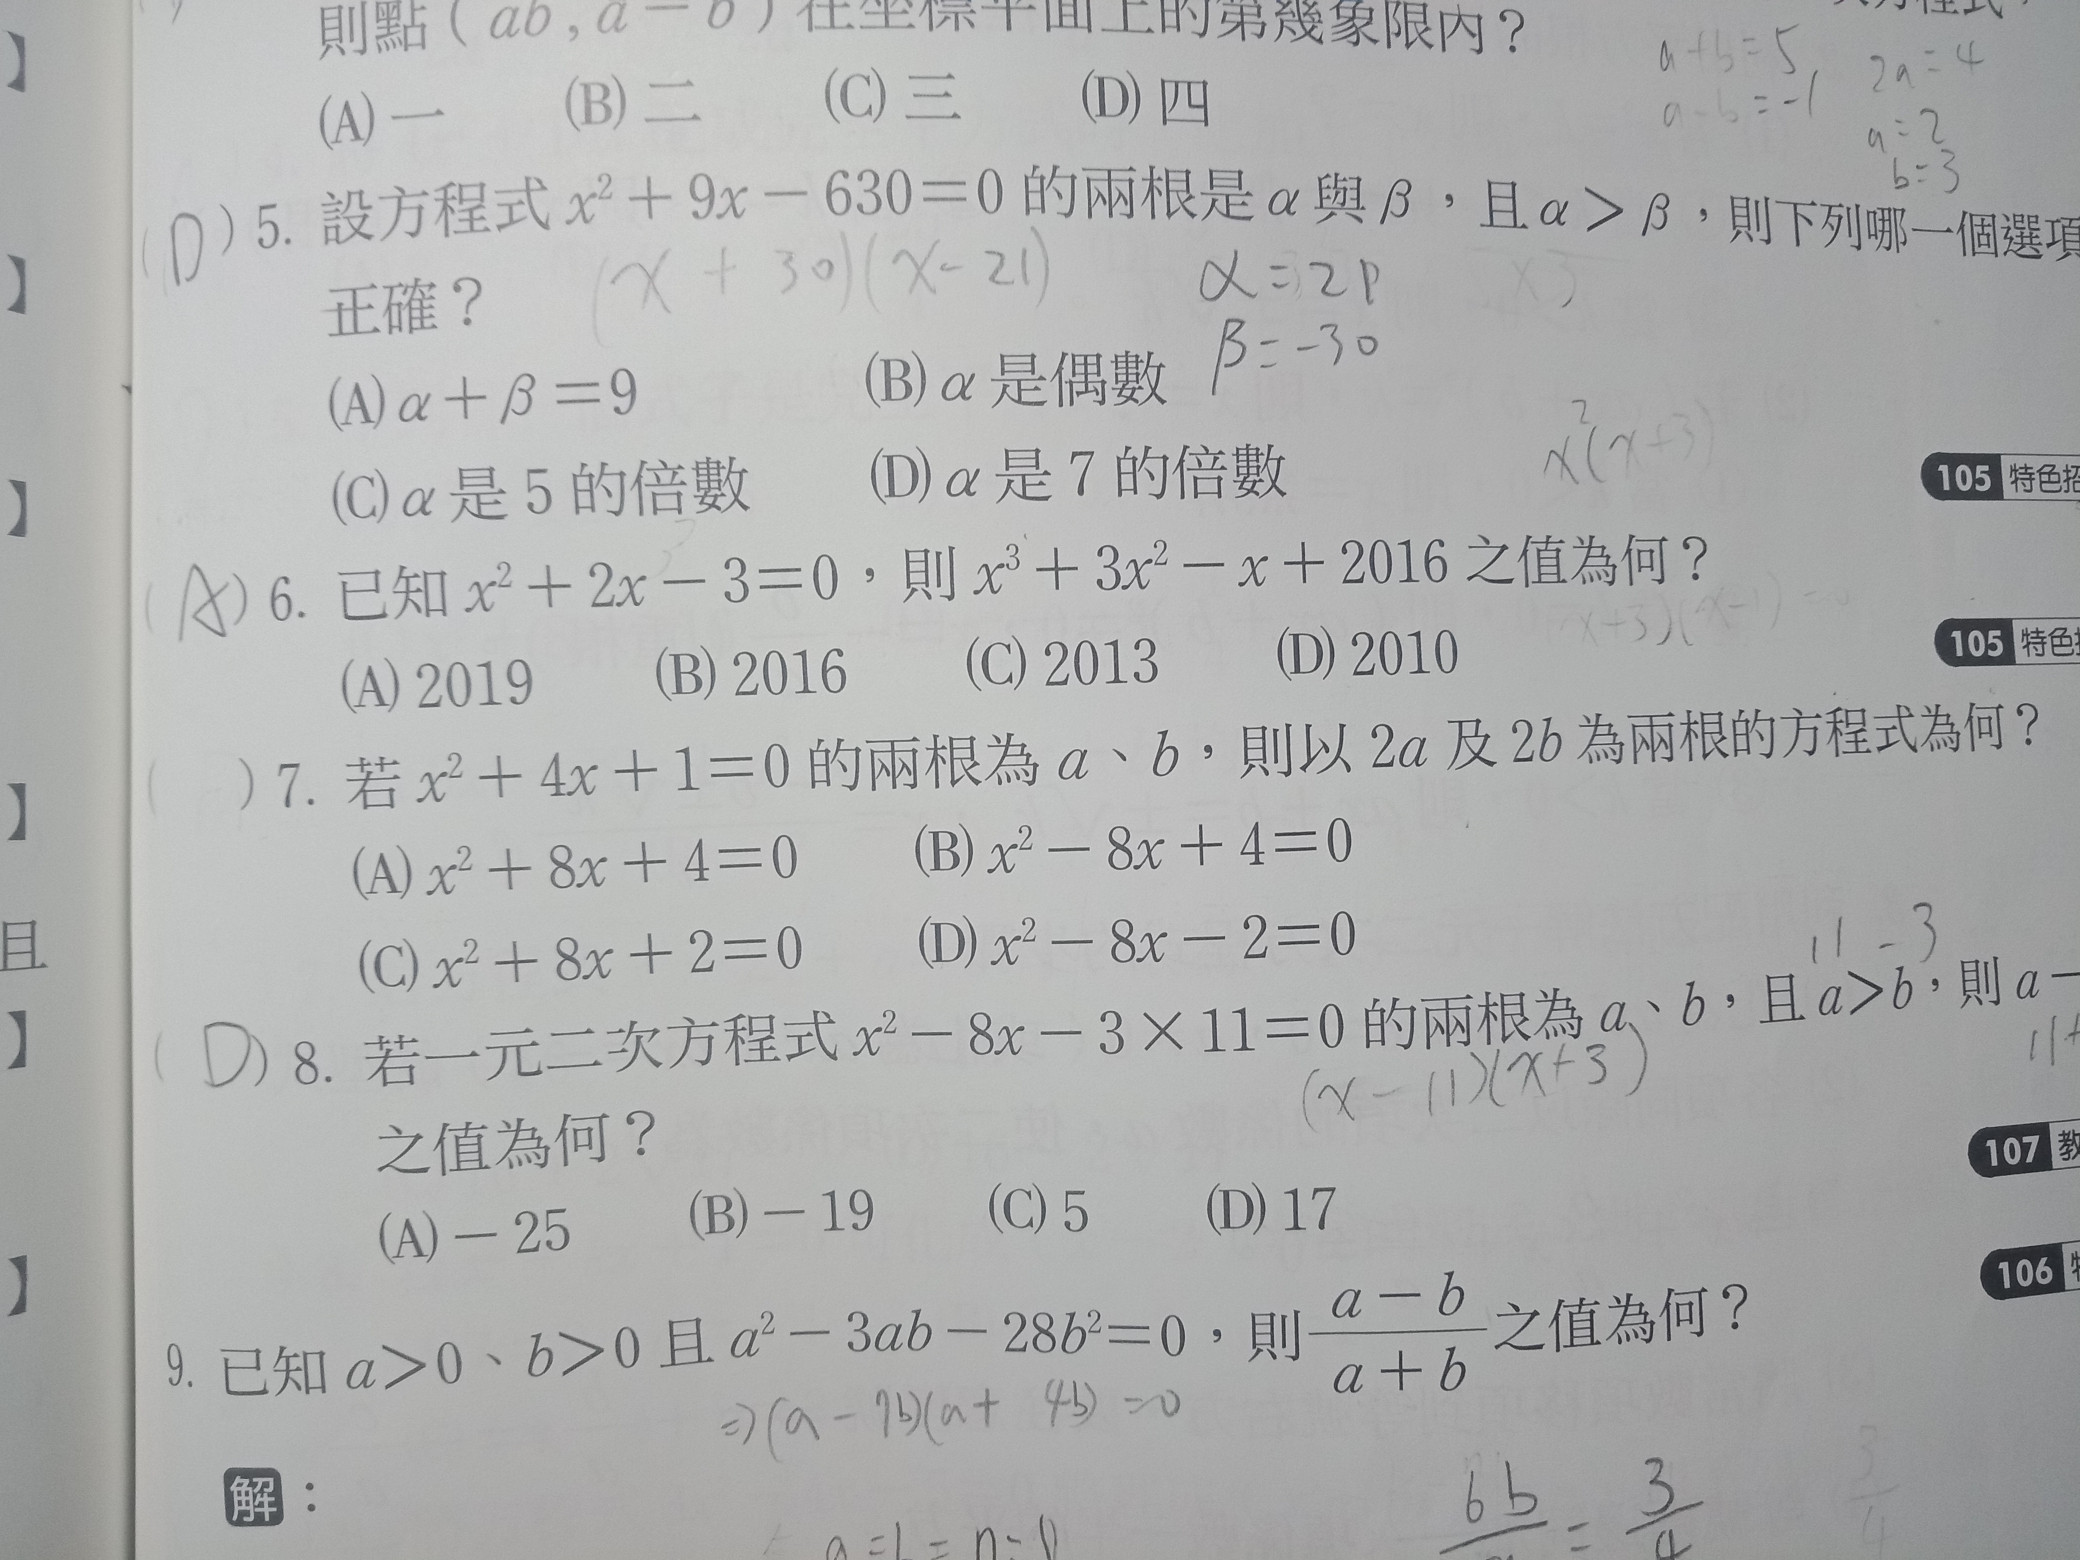 則點(ab,a-b)在坐標平面上的第幾象限內?
(A)一 (B)二 (C)三 (D)四
a+b=5 2a=4
a-b=-1 a=2
b=3
(D)5. 設方程式 x²+9x-630=0 的兩根是α與β,且α>β,則下列哪一個選項
正確? (x+30)(x-21) α=21
β=-30
(A)α+β=9 (B)α是偶數
x²(x+3)
(C)α是5的倍數 (D)α是7的倍數
105 特色招
(A)6. 已知 x²+2x-3=0,則 x³+3x²-x+2016 之值為何?
(x+3)(x-1)=0
(A)2019 (B)2016 (C)2013 (D)2010
105 特色
( )7. 若 x²+4x+1=0 的兩根為 a、b,則以 2a 及 2b 為兩根的方程式為何?
(A)x²+8x+4=0 (B)x²-8x+4=0
(C)x²+8x+2=0 (D)x²-8x-2=0
11 -3
(D)8. 若一元二次方程式 x²-8x-3×11=0 的兩根為 a、b,且 a>b,則 a-
(x-11)(x+3) 11+
之值為何?
107 教
(A)-25 (B)-19 (C)5 (D)17
106
9. 已知 a>0、b>0 且 a²-3ab-28b²=0,則 (a-b)/(a+b) 之值為何?
⇒(a-7b)(a+4b)=0
解:
6b = 3/4
且
】
】
】
】
】
】